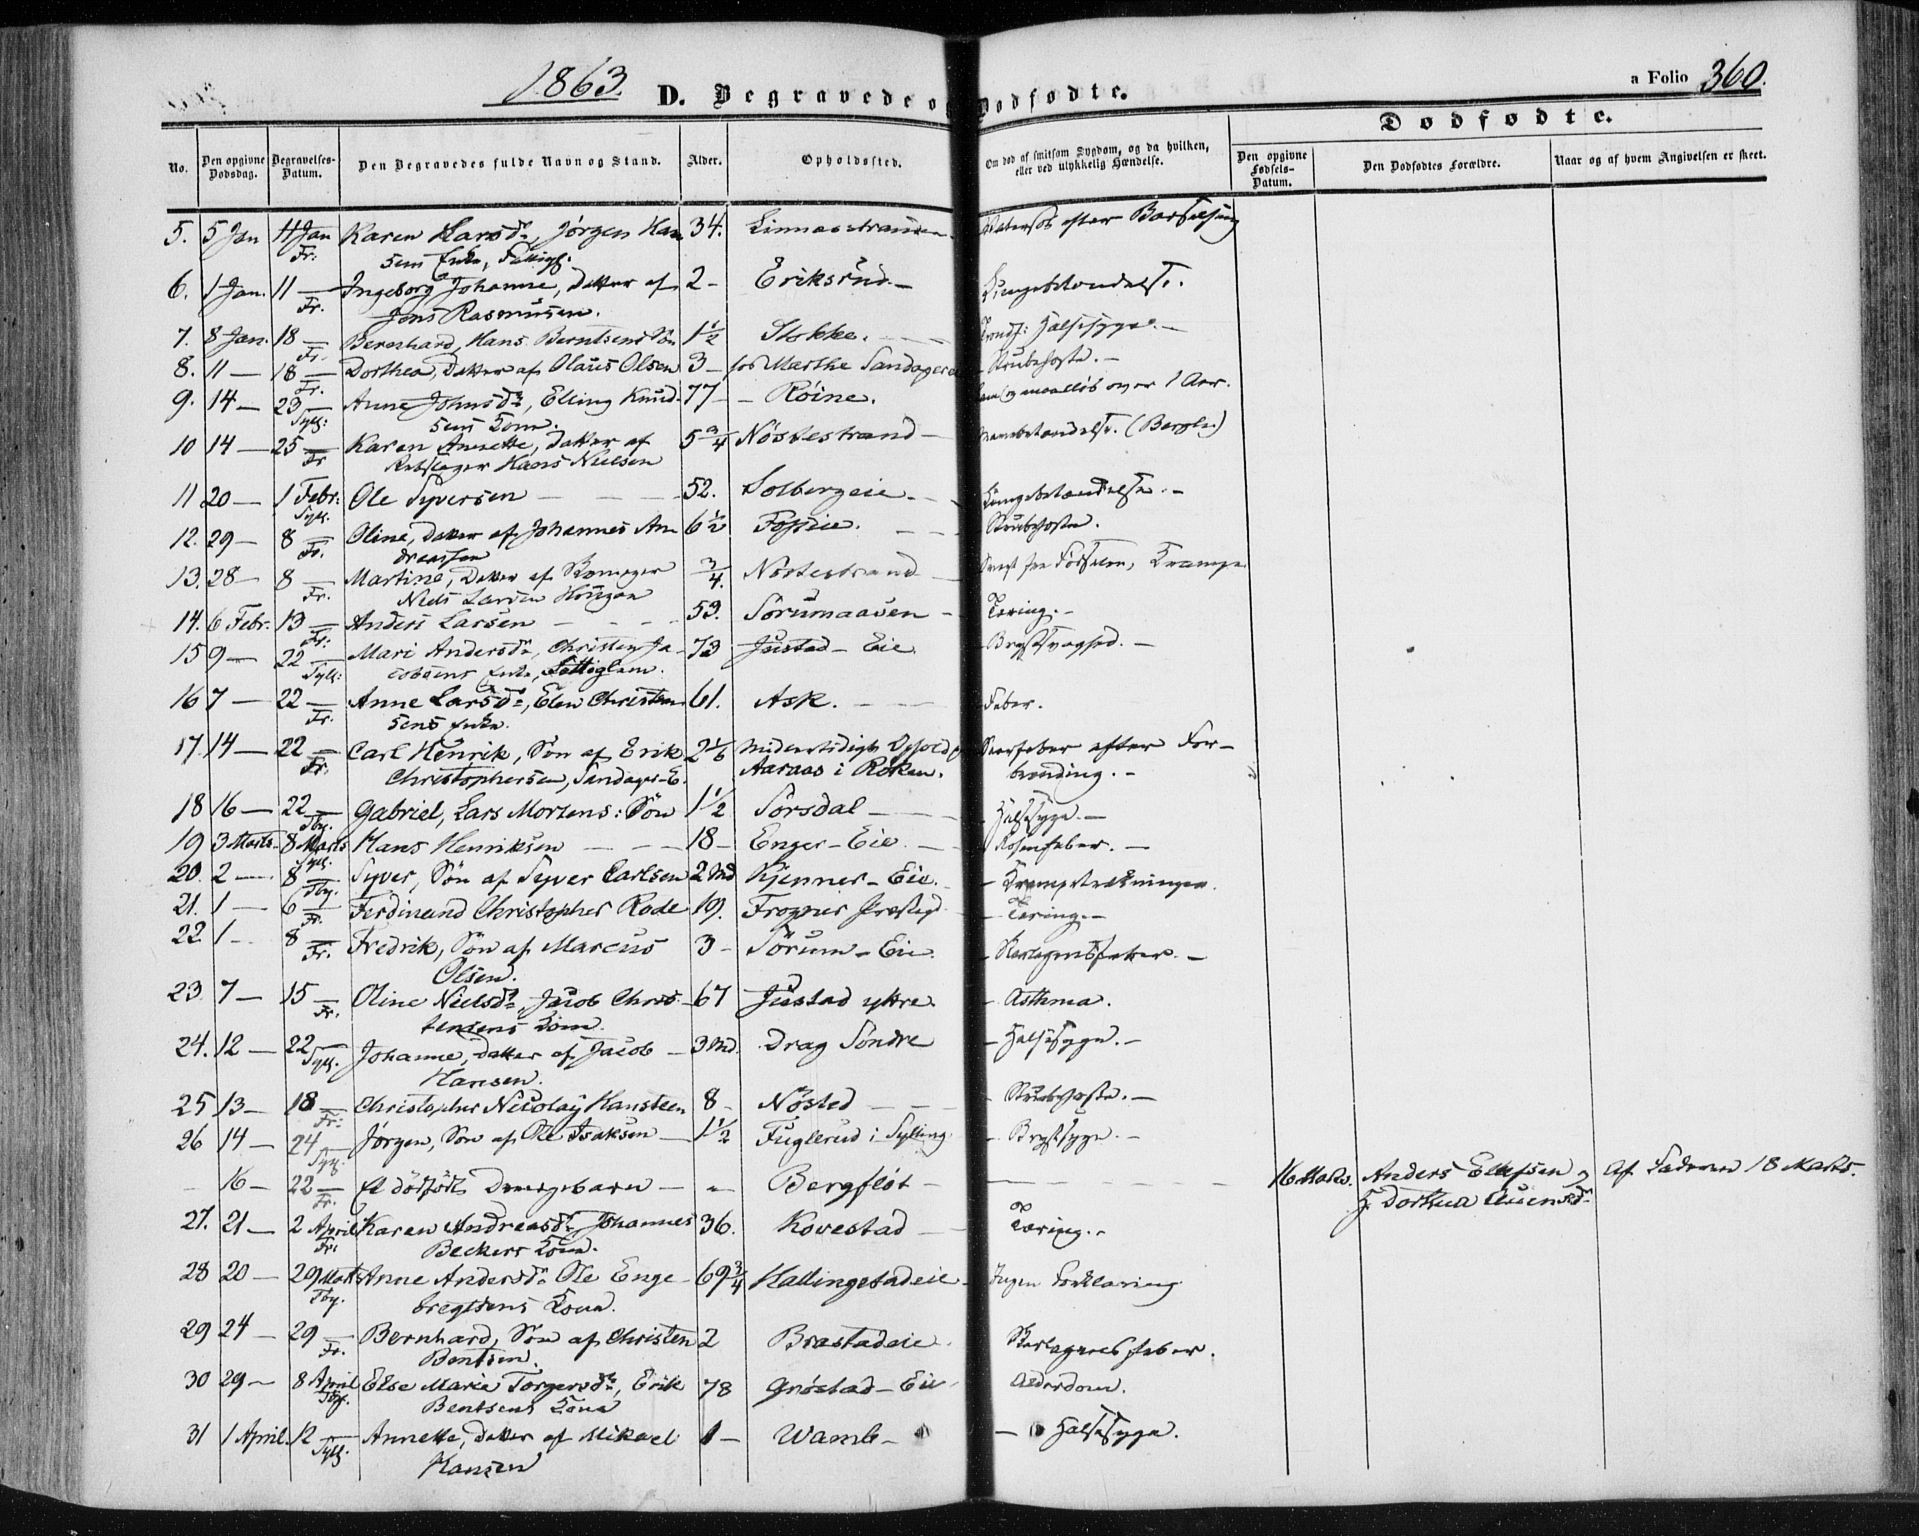 1863. D. Begravede og Dødfødte. a Folio 360.
Dødfødte.
No. Den opgivne Dødsdag. Begravelses-Datum. Den Begravedes fulde Navn og Stand. Alder. Opholdssted. Om død af smitsom Sygdom, og da hvilken, eller ved ulykkelig Hændelse. Den opgivne Fødsels-Datum. Den Dødfødtes Forældre. Naar og af hvem Angivelsen er skeet.
5. 5 Jan 11 Jan Karen Larsdr, Jørgen Han 34. Linnesstranden efter Barselseng
Fr: sens Enke, Fattigl.
6. 1 Jan. 11 — Ingeborg Johanne, Datter af 2 - Eriksrud - Lungebetændelse.
Fr. Jens Rasmussen.
7. 8 Jan. 18 — Bernhard, Hans Berntsens Søn 1½ Stokke. - Halsesyge. -
Fr.
8. 11 — 18 — Dorthea, Datter af Olaus Olsen 3 - Marthe Sandager - Strubehoste. -
Fr.
9. 14 — 23 — Anne Johnsdr, Elling Knud- 77 - Røine. over 1 Aar.
Syll: sens Kone.
10 14 — 25 — Karen Annette, Datter af 5¾ Nøstestrand -
Fr Rebslager Hans Nielsen
11 20 — 1 Febr: Ole Syversen 52. Solbergeie - Lungebetændelse. -
Syll.
12. 29 — 8 — Oline, Datter af Johannes An 6½ - Strubehoste.
Fr. dreassen
13. 28 — 8 — Martine, Datter af ¾. Nøstestrand - Svag fra Fødselen, Krampe
Fr. Niels Larsen Hougen
14. 6 Febr. 13 — Anders Larsen 59. Sørumaasen - Tæring. -
Fr:
15 9 — 22 — Mari Andersdr, Christen Ja- 73 Justad - Eie - Brystsvaghed. -
Syll: cobsens Enke, Fattiglem.
16 7 — 22 — Anne Larsdr, Elen Christen 61. Ask. - Feber.
Fr. sens Enke.
17. 14 — 22 — Carl Henrik, Søn af Erik 2 1/6 Midlertidigt Ophold p. Saarfeber efter For-
Fr. Christophersen, Sandager-E. Aaraas i Røken. brænding. -
18 16 — 22 — Gabriel, Lars Mortens: Søn 1½ Sørsdal - - Halsesyge. -
Tby.
19 3 Marts 8 Marts Hans Henriksen 18 - Enger - Eie. - Rosenfeber. -
Syll.
20. 2 — 8 — Syver, Søn af Syver Carlsen 2 Md Kjenner - Eie. - Krampetrækninger.
Tby.
21. 1 — 6 — Ferdinand Christopher Rode 19. Frogner Præstegd - Tæring. -
Fr.
22 1 — 8 — Fredrik, Søn af Marcus 3 - Sørum - Eie - Skarlagensfeber. -
Fr. Olsen.
23 7 — 15 — Oline Nielsdr, Jacob Chris- 67 Justad yttre - Asthma.
Fr. tensens Kone.
24. 12 — 22 — Johanne, Datter af Jacob - 3 Md. Drag Søndre - Halsesyge. -
Syll. Hansen.
25 13 — 18 — Christopher Nicolay Hansteen 8 - Nøsted - - Strubehoste. -
Fr:
26 14 — 24 — Jørgen, Søn af Ole Isaksen - 1½ Fuglerud i Sylling - Brystsyge. -
Syll.
— 16 — 22 — Et dødfødt Drengebarn - - Bergfløt - 16 Marts. Anders Ellefsen og Af Faderen 18 Marts.
Fr. H. Dorthea
27. 21 — 2 April Karen Andreasdr, Johannes 36. Kovestad - Tæring. -
Fr: Beckers Kone.
28 20 — 29 Marts Anne Andersdr Ole Enge- 69¾ Hallingstadeie - Ingen Forklaring
Tby. bregtsens Kone.
29 24 — 29 — Bernhard, Søn af Christen 2 Brastadeie. Skarlagensfeber.
Fr. Bentsen.
30 29 — 8 April Else Marie Torgersdr, Erik 78 Grøstad - Eie - Alderdom.
Tby. Bentsens Kone
31 1 April. 12 — Annette, Datter af Mikael 1 - Wamb - - Halsesyge.
Syll. Hansen